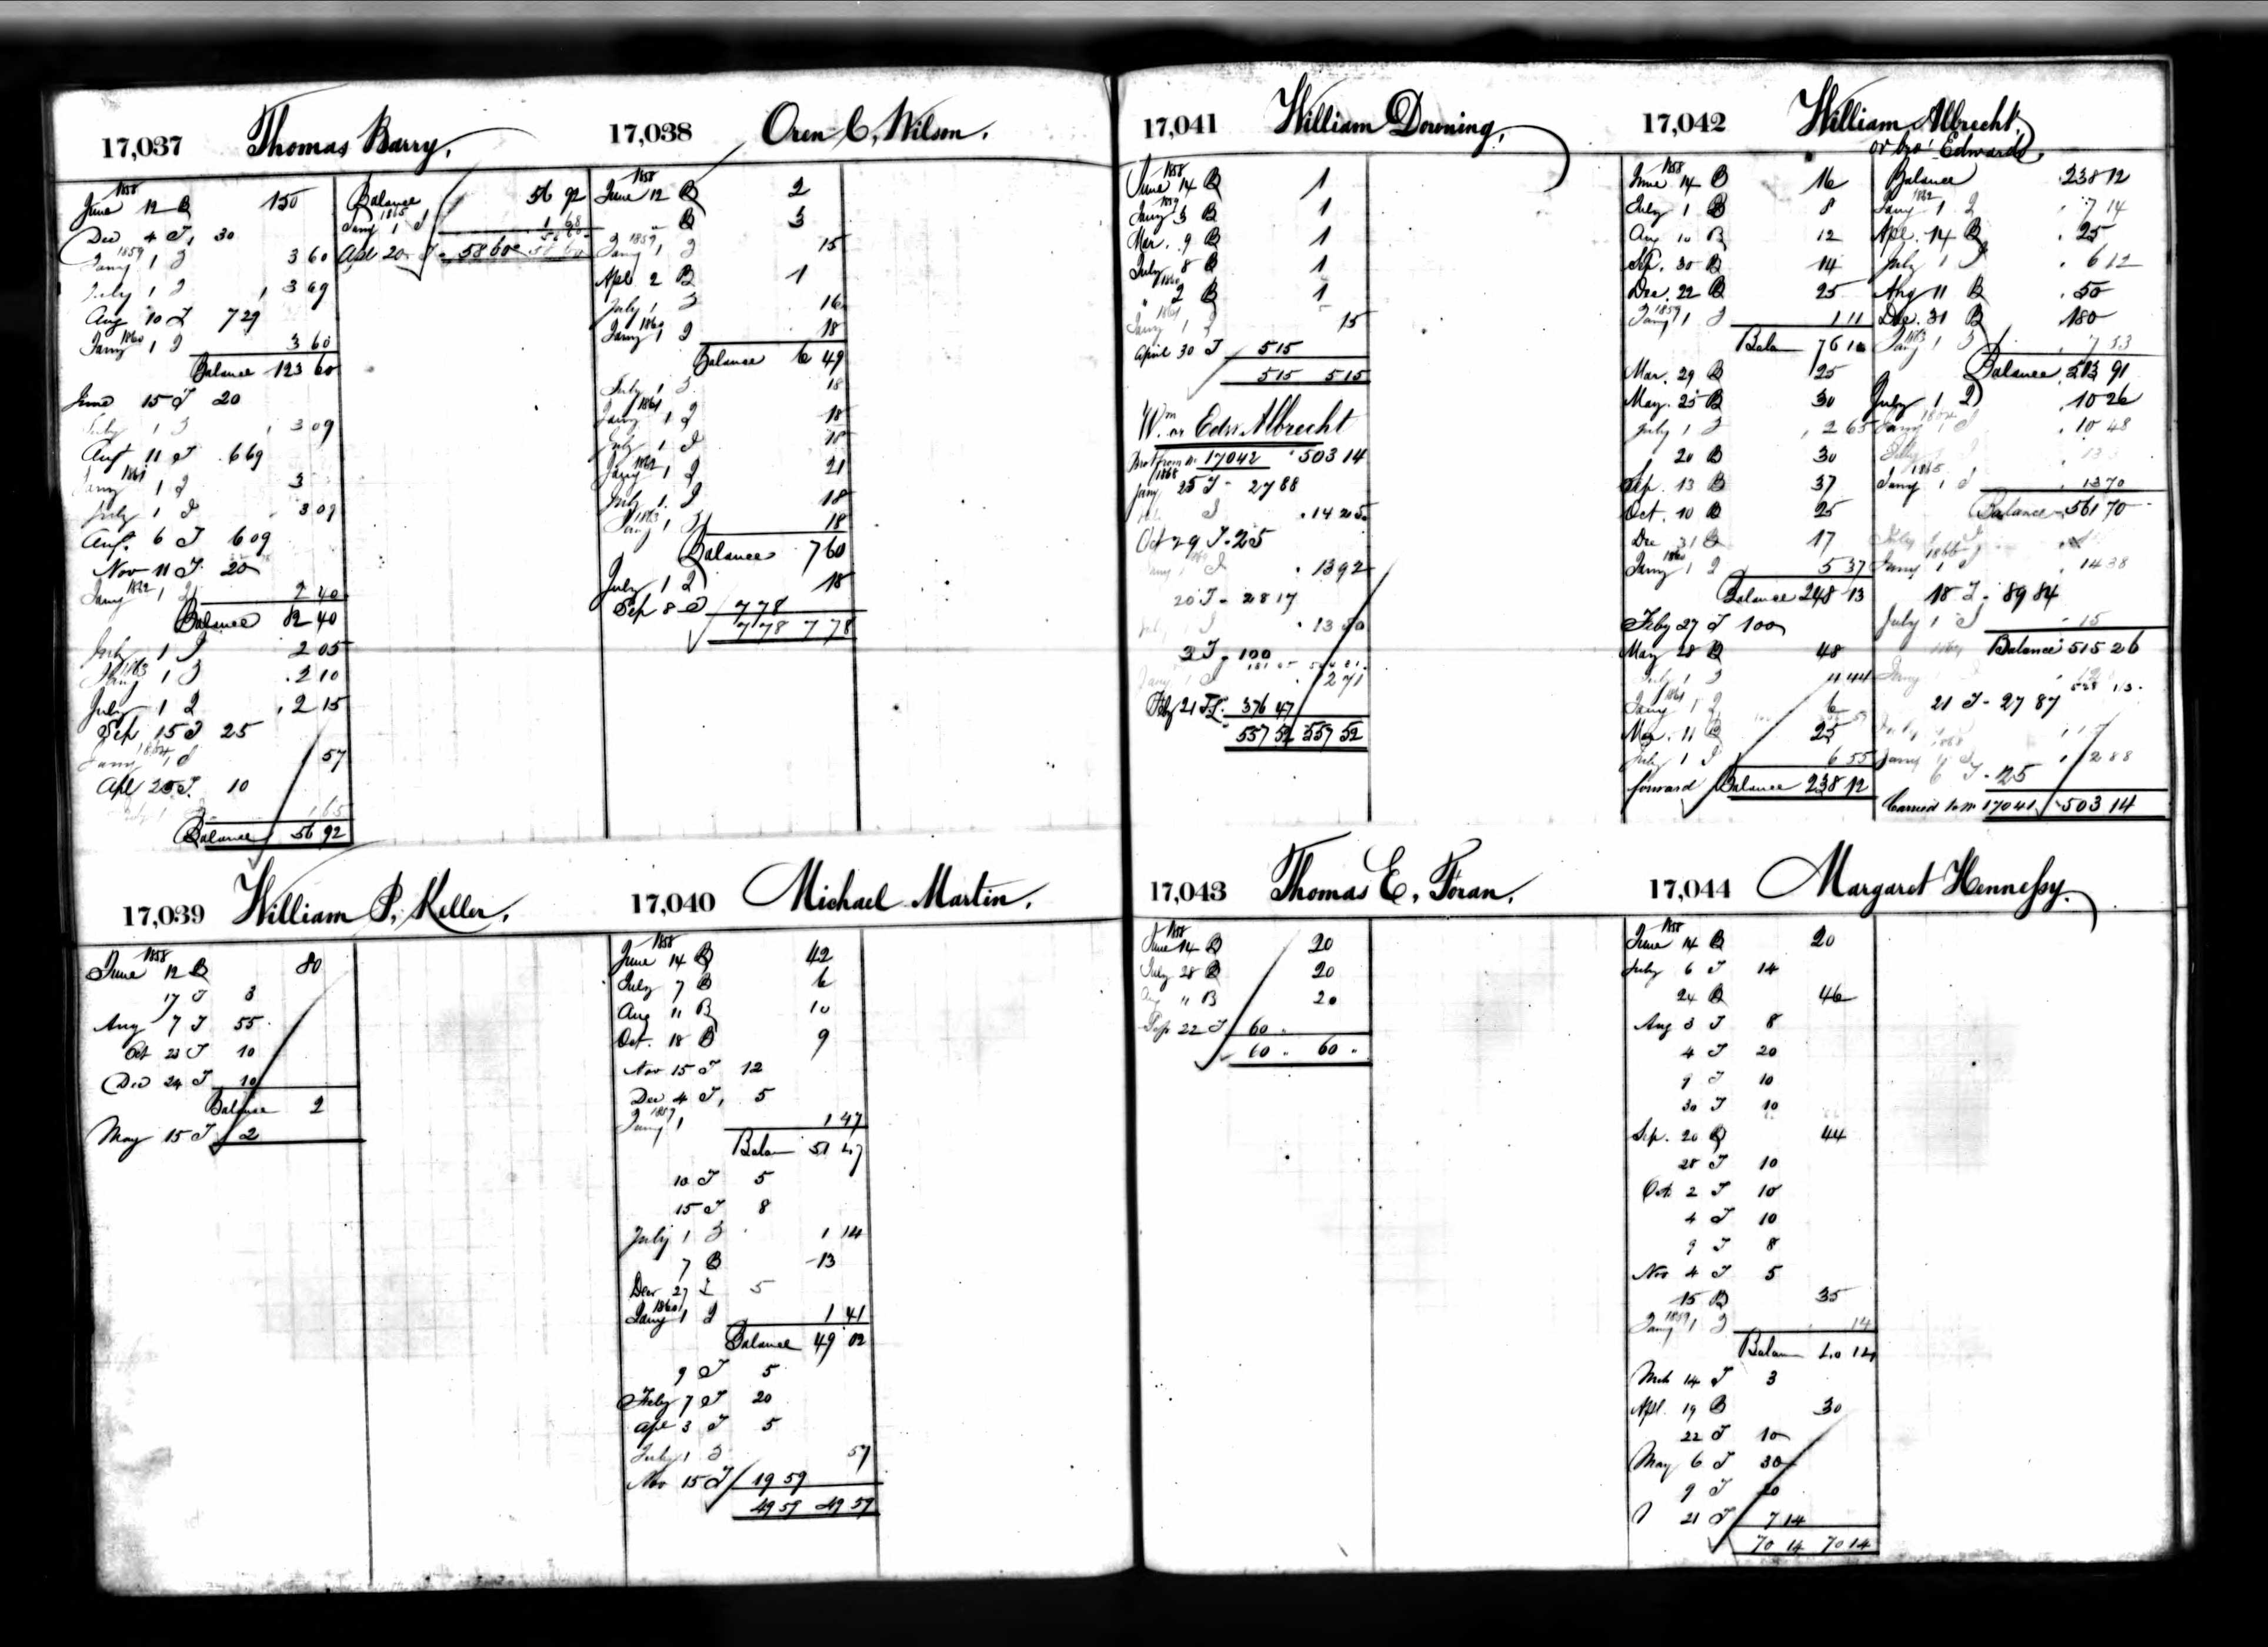 17,037 Thomas Barry.
1858
June 12 B 150
Dec 4 T, 30
1859
Jany 1 I 3 60
July 1 I 3 69
Aug 10 T 7 29
Jany 1860 1 I 3 60
Balance 123 60
June 15 T 20
July 1 I 3 09
Aug 11 T 6 69
Jany 1861 1 I 3
July 1 I 3 09
Aug. 6 T 6 09
Nov 11 T 20
Jany 1862 1 I 2 40
Balance 82 40
July 1 I 2 05
Jany 1863 1 I 2 10
July 1 I 2 15
Sep 15 T 25
Jany 1864 1 I 57
Apl 25 T. 10
July 1 I 1 65
Balance 56 92
Balance 56 92
Jany 1865 1 I 1 68
Apl 20 T. 58 60 58 60
17,038 Oren C. Wilson.
1858
June 12 B 2
" B 3
1859
Jany 1 I 15
Apl 2 B 1
July 1 I 16
Jany 1860 1 I 18
Balance 6 49
July 1 I 18
Jany 1861 1 I 18
July 1 I 18
Jany 1862 1 I 21
July 1 I 18
Jany 1863 1 I 18
Balance 7 60
July 1 I 18
Sep 8 T 7 78
7 78 7 78
17,039 William P. Keller.
1858
June 12 B 80
17 T 3
Aug 7 T 55
Oct 23 T 10
Dec 24 T 10
Balance 2
May 15 T 2
17,040 Michael Martin.
1858
June 14 B 42
July 7 B 6
Aug 11 B 10
Oct. 18 B 9
Nov 15 T 12
Dec 4 T, 5
1859
Jany 1 1 47
Balan 51 47
10 T 5
15 T 8
July 1 I 1 14
7 B 13
Decr 27 T 5
Jany 1860 1 I 1 41
Balance 49 02
9 T 5
Feby 7 T 20
Apl 3 T 5
July 1 I 57
Nov 15 T 19 59
49 59 49 59
17,041 William Downing,
1858
June 14 B 1
1859
Jany 3 B 1
Mar. 9 B 1
July 8 B 1
1860
" 2 B 1
1861
Jany 1 I 15
April 30 T 5 15
5 15 5 15
Wm or Edw Albrecht
Brot from No 17042 503 14
1868
Jany 25 T 27 88
I 14 25
Oct 29 T. 25
I 13 92
20 T 28 17
I
3 T 100
Jany 1 I 2 71
Feby 21 T. 376 47
557 52 557 52
17,042 William Albrecht,
or bro' Edward,
1858
June 14 B 16
July 1 B 8
Aug 10 B 12
Sep. 30 B 14
Dec. 22 B 25
Jany 1859 1 I 1 11
Balan 76 11
Mar. 29 B 25
May. 25 B 30
July 1 I 2 65
20 B 30
Sep. 13 B 37
Oct. 10 B 25
Dec 31 B 17
Jany 1860 1 I 5 37
Balance 248 13
Feby 27 T 100
May 28 B 48
July 1 I 4 44
Jany 1861 1 I 6
Mar. 11 B 25
July 1 I 6 55
forward Balance 238 12
Balance 238 12
Jany 1862 1 I 7 14
Apl. 14 B 25
July 1 I 6 12
Aug 11 B 50
Dec. 31 B 180
Jany 1863 1 I 7 53
Balance 513 91
July 1 I 10 26
Jany 1864 1 I 10 48
July 1 I 13
Jany 1865 1 I 13 70
Balance 561 70
July 1 I
Jany 1866 1 I 14 38
18 T. 89 84
July 1 I 15
Balance 515 26
Jany
21 T 27 87
Jany 1868 1 I 2 88
6 T. 25
Carried to No 17041 503 14
17,043 Thomas E. Foran.
1858
June 14 B 20
July 28 B 20
Aug " B 20
Sep 22 T 60 "
60 " 60 "
17,044 Margaret Hennessy.
1858
June 14 B 20
July 6 T 14
24 B 46
Aug 3 T 8
4 T 20
9 T 10
30 T 10
Sep. 20 B 44
28 T 10
Oct 2 T 10
4 T 10
9 T 8
Nov 4 T 5
15 B 35
Jany 1859 1 I 14
Balan 40 14
Mch 14 T 3
Apl. 19 B 30
22 T 10
May 6 T 30
9 T 20
21 T 7 14
70 14 70 14